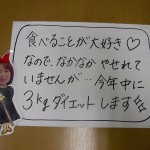 食べることが大好き♡
なので、なかなか やせれて
いませんが…今年中に
3kgダイエットします